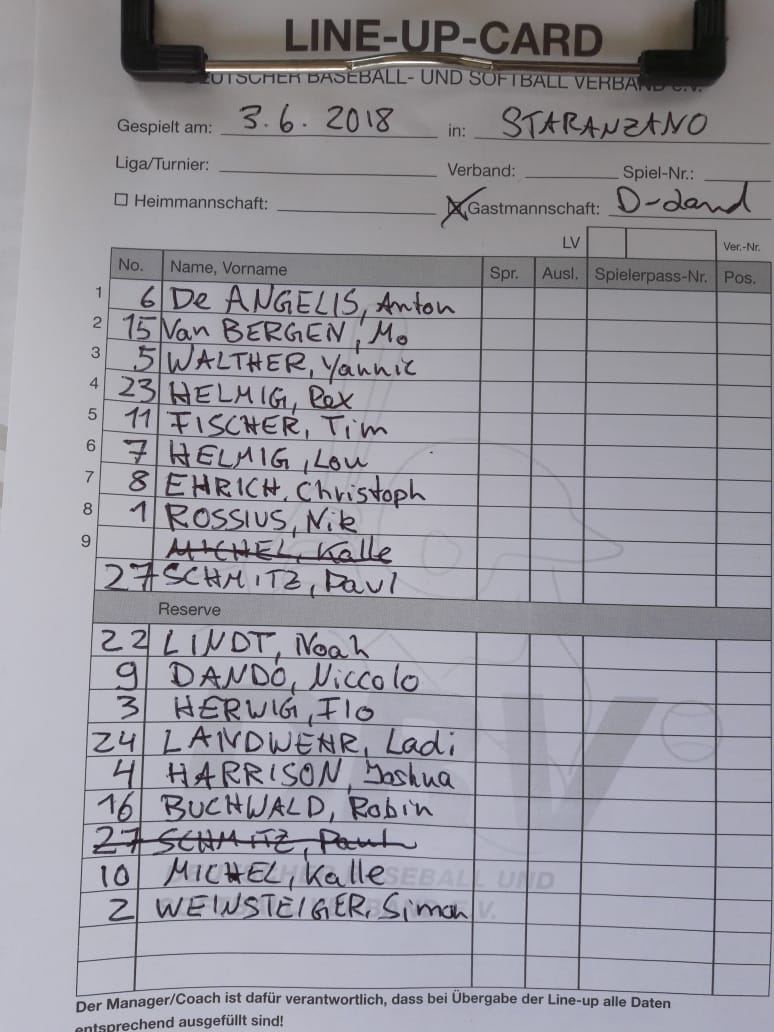 LINE-UP-CARD
DEUTSCHER BASEBALL- UND SOFTBALL VERBAND e.V.
Gespielt am: 3.6.2018 in: STARANZANO
Liga/Turnier: Verband: Spiel-Nr.:
Heimmannschaft: Gastmannschaft: D-Land
LV Ver.-Nr.
No. Name, Vorname Spr. Ausl. Spielerpass-Nr. Pos.
1 6 De ANGELIS, Anton
2 15 Van BERGEN, Mo
3 5 WALTHER, Yannic
4 23 HELMIG, Rex
5 11 FISCHER, Tim
6 7 HELMIG, Lou
7 8 EHRICH, Christoph
8 1 ROSSIUS, Nik
9 MICHEL, Kalle
27 SCHMITZ, Paul
Reserve
22 LINDT, Noah
9 DANDO, Niccolo
3 HERWIG, Flo
24 LANDWEHR, Ladi
4 HARRISON, Joshua
16 BUCHWALD, Robin
27 SCHMITZ, Paul
10 MICHEL, Kalle
2 WEINSTEIGER, Simon
DEUTSCHER BASEBALL UND
SOFTBALL VERBAND E.V.
Der Manager/Coach ist dafür verantwortlich, dass bei Übergabe der Line-up alle Daten
entsprechend ausgefüllt sind!